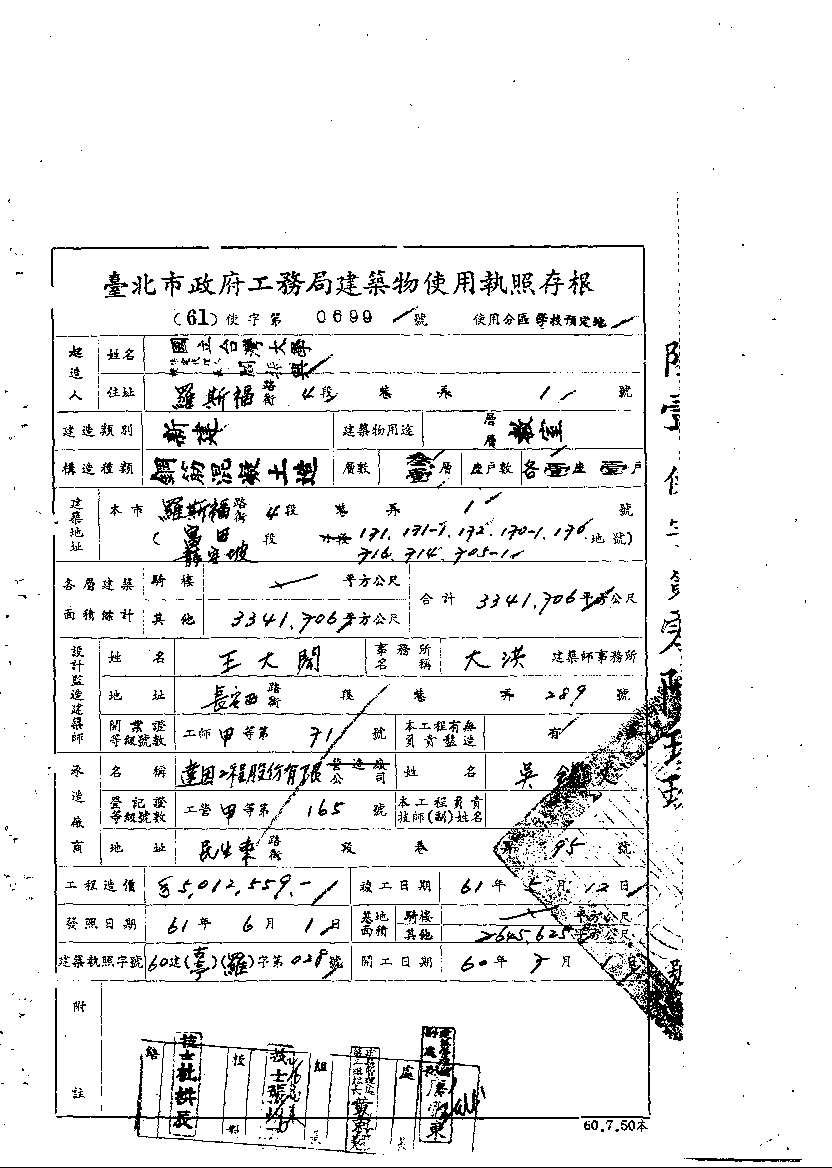 臺北市政府工務局建築物使用執照存根
(61)使字第 0699 號 使用分區 學校預定地
起造人 姓名 國立台灣大學 閻振興
住址 羅斯福路街 4段 巷 弄 1 號
建造類別 新建 建築物用途 層層 教室
構造種類 鋼筋混凝土造 層數 層 座戶數 各壹座 壹戶
建築地址 本市 羅斯福路街 4段 巷 弄 1 號
(富田 段 小段 171.171-1.172.170-1.176 地號)
716.714.705-1
各層建築面積總計 騎樓 平方公尺 合計 3341.706平方公尺
其他 3341.706平方公尺
設計監造建築師 姓名 王大閎 事務所名稱 大洪 建築師事務所
地址 長安西路街 段 巷 弄 289 號
開業證等級號數 工師 甲 等第 71 號 本工程有無負責監造 有
承造廠商 名稱 達因工程股份有限 營造廠公司 姓名 吳
登記證等級號數 工營 甲 等第 165 號 本工程負責技師(副)姓名
地址 民生東路街 段 巷 弄 95 號
工程造價 $5,012,559.- 竣工日期 61年5月12日
發照日期 61年6月1日 基地面積 騎樓 平方公尺
其他 2645.625平方公尺
建築執照字號 60建( )(羅)字第028號 開工日期 60年7月1日
附註
技士杜拱辰 技士張 組長 處長
60.7.50本